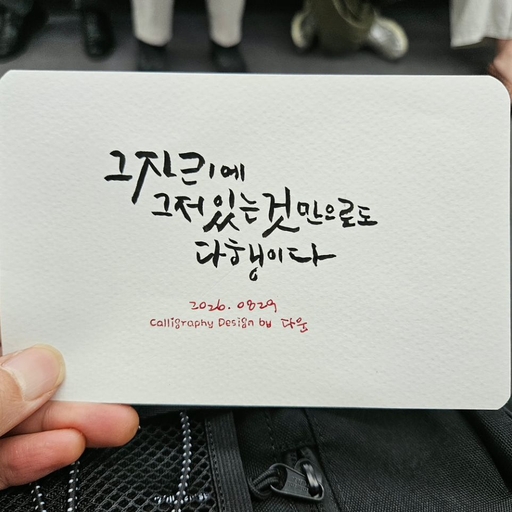 그 자리에
그저 있는 것 만으로도
다행이다
2026. 0829
Calligraphy Design by 다운